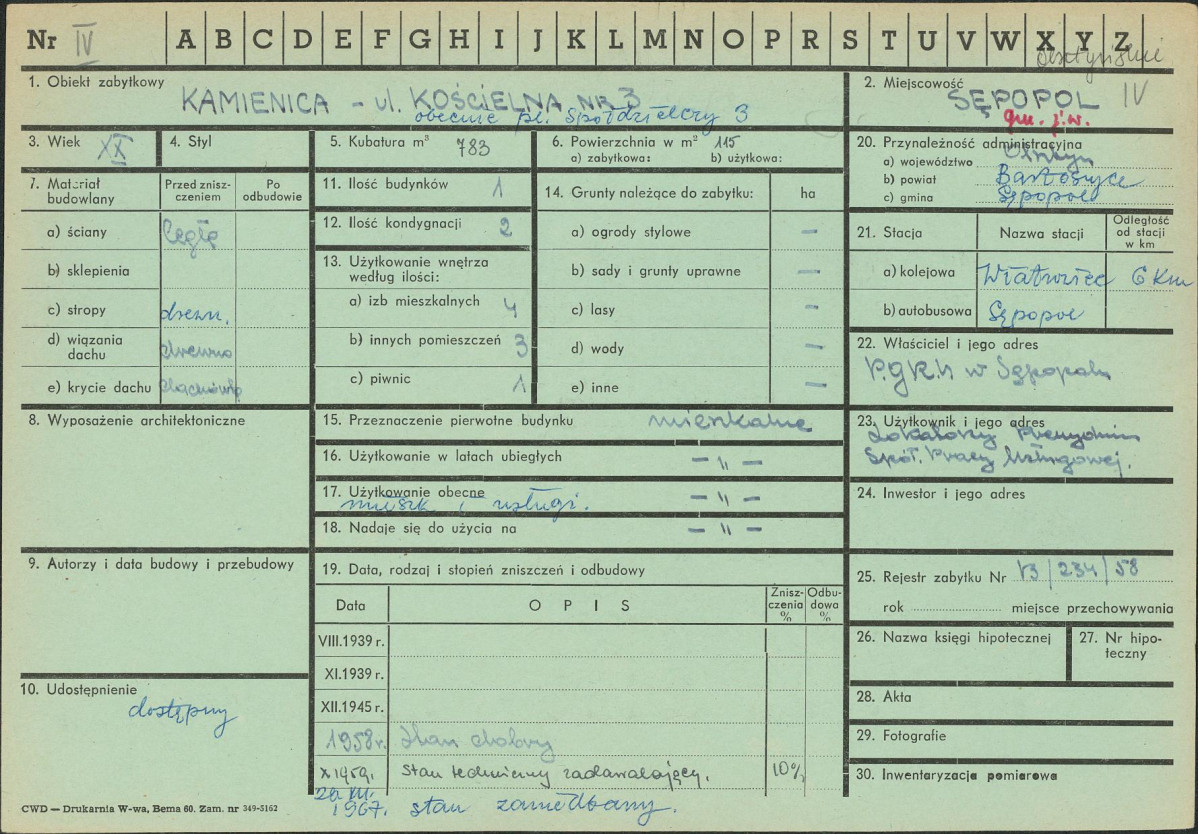 Nr IV A B C D E F G H I J K L M N O P R S T U V W X Y Z
olsztyńskie
1. Obiekt zabytkowy
KAMIENICA - ul. KOŚCIELNA NR 3
obecnie pl. Spółdzielczy 3
2. Miejscowość
SĘPOPOL IV
gm. j.w.
3. Wiek XX
4. Styl
5. Kubatura m³ 783
6. Powierzchnia w m² 115
a) zabytkowa: b) użytkowa:
20. Przynależność administracyjna
a) województwo Olsztyn
b) powiat Bartoszyce
c) gmina Sępopol
7. Materiał budowlany
Przed znisz-
czeniem
Po
odbudowie
a) ściany cegła
b) sklepienia
c) stropy drewn.
d) wiązania
dachu drewno
e) krycie dachu dachówka
11. Ilość budynków 1
12. Ilość kondygnacji 2
13. Użytkowanie wnętrza
według ilości:
a) izb mieszkalnych 4
b) innych pomieszczeń 3
c) piwnic 1
14. Grunty należące do zabytku: ha
a) ogrody stylowe —
b) sady i grunty uprawne —
c) lasy —
d) wody —
e) inne —
21. Stacja
Nazwa stacji
Odległość
od stacji
w km
a) kolejowa Wiatrowiec 6 km
b) autobusowa Sępopol
22. Właściciel i jego adres
P.G.K.M w Sępopolu
8. Wyposażenie architektoniczne
15. Przeznaczenie pierwotne budynku mieszkalne
16. Użytkowanie w latach ubiegłych — " —
17. Użytkowanie obecne — " —
mieszk i usługi.
18. Nadaje się do użycia na — " —
23. Użytkownik i jego adres
Lokatorzy Prezydium
Spół. Pracy Usługowej.
24. Inwestor i jego adres
9. Autorzy i data budowy i przebudowy
19. Data, rodzaj i stopień zniszczeń i odbudowy
Data
OPIS
Znisz-
czenia
%
Odbu-
dowa
%
VIII.1939 r.
XI.1939 r.
XII.1945 r.
1958 r. stan dobry
X 1959. stan techniczny zadawalający. 10%
1967. stan zaniedbany.
25. Rejestr zabytku Nr 13/234/58
rok miejsce przechowywania
26. Nazwa księgi hipotecznej
27. Nr hipo-
teczny
10. Udostępnienie
dostępny
28. Akta
29. Fotografie
30. Inwentaryzacja pomiarowa
CWD — Drukarnia W-wa, Bema 60. Zam. nr 349-5162